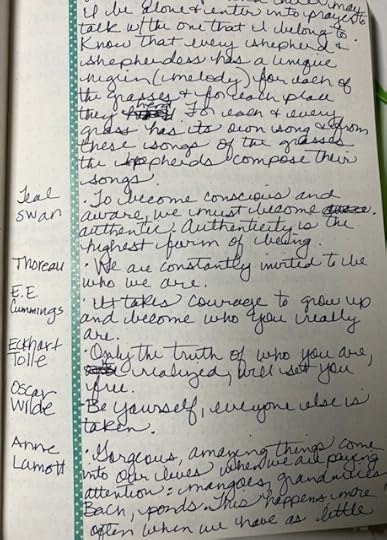 may
I be alone & enter into prayer to
talk w/ the one that I belong to.
Know that every shepherd &
shepherdess has a unique
nigun (melody) for each of
the grasses & for each place
they herd. For each & every
grass has its own song & from
these songs of the grasses
the shepherds compose their
songs.
Teal Swan
· To become conscious and
aware, we must become
authentic. Authenticity is the
highest form of being.
Thoreau
· We are constantly invited to be
who we are.
E.E. Cummings
· It takes courage to grow up
and become who you really
are.
Eckhart Tolle
· Only the truth of who you are,
realized, will set you
free.
Oscar Wilde
· Be yourself, everyone else is
taken.
Anne Lamott
· Gorgeous, amazing things come
into our lives when we are paying
attention: mangoes, grandnieces,
Bach, ponds. This happens more
often when we have as little